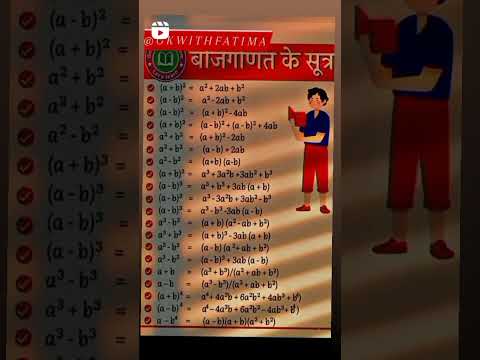 @GKWITHFATIMA
बीजगणित के सूत्र
(a + b)² = a² + 2ab + b²
(a - b)² = a² - 2ab + b²
(a - b)² = (a + b)² - 4ab
(a + b)² = (a - b)² + (a - b)² + 4ab
a² + b² = (a + b)² - 2ab
a² + b² = (a - b) + 2ab
a² - b² = (a+b) (a-b)
(a + b)³ = a³ + 3a²b +3ab² + b³
(a - b)³ = a³ + b³ + 3ab (a + b)
(a - b)³ = a³ - 3a²b + 3ab² - b³
(a - b)³ = a³ - b³ -3ab (a - b)
a³ - b³ = (a + b) (a² - ab + b²)
a³ + b³ = (a + b)³ - 3ab (a + b)
a³ - b³ = (a - b) (a² + ab + b²)
a³ - b³ = (a - b)³ + 3ab (a - b)
a + b = (a³ + b³)/(a² + ab + b²)
a - b = (a³ - b³)/(a² + ab + b²)
(a + b)⁴ = a⁴ + 4a³b + 6a²b² + 4ab³ + b⁴
(a - b)⁴ = a⁴ - 4a³b + 6a²b² - 4ab³ + b⁴
a - b⁴ = (a - b)(a + b)(a² + b²)
(a - b)²
(a - b)² =
(a + b)² =
a² + b² =
a² + b² =
a² - b² =
(a + b)³ =
(a - b)³ =
(a - b)³ =
(a - b)³ =
a³ - b³ =
a³ + b³ =
a³ - b³ =